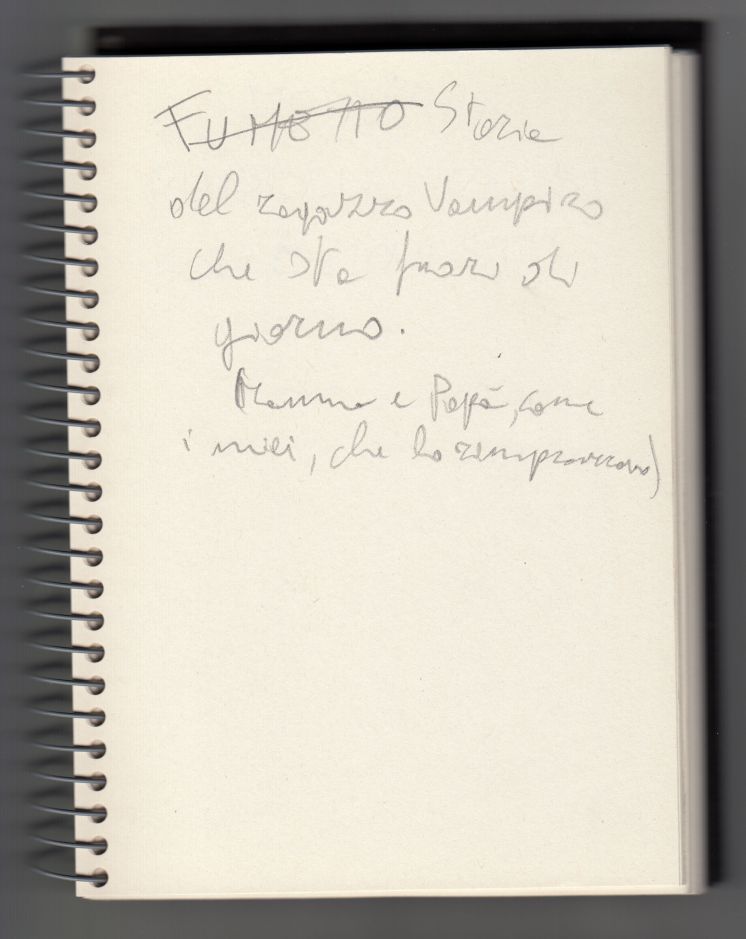 FUMETTO Storia
del ragazzo Vampiro
che sta fuori di
giorno.
Mamma e Papà, come
i miei, che lo rimproverano)